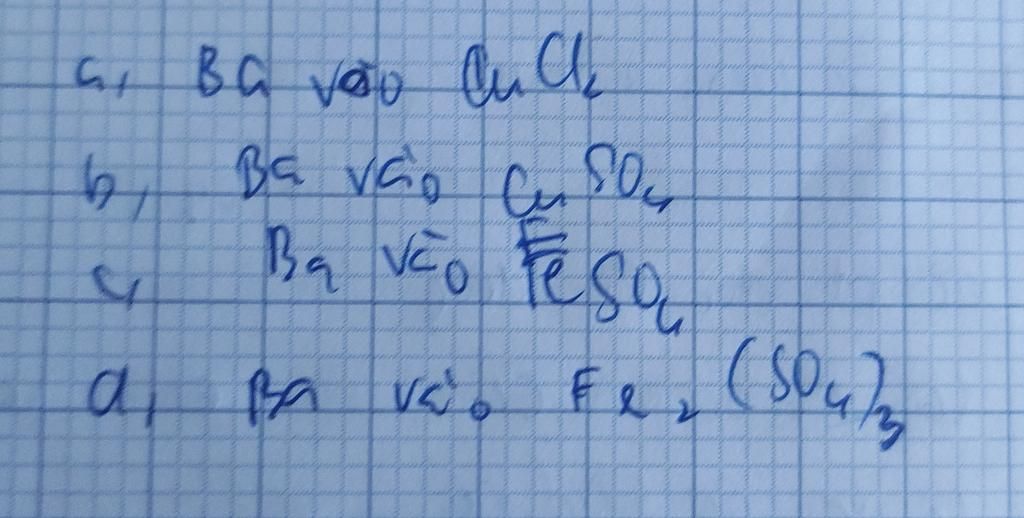 a, Ba vào CuCl₂
b, Ba vào CuSO₄
c, Ba vào FeSO₄
d, Ba vào Fe₂(SO₄)₃